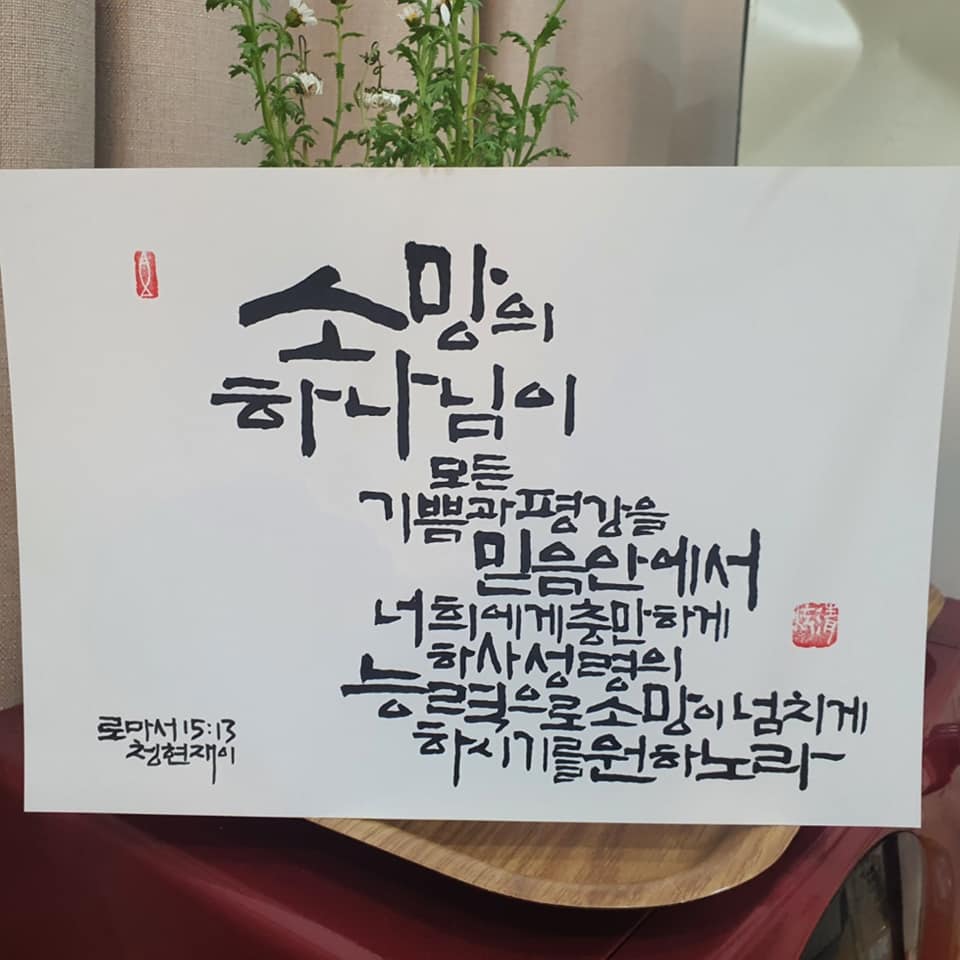 소망의
하나님이
모든
기쁨과 평강을
믿음 안에서
너희에게 충만하게
하사 성령의
능력으로 소망이 넘치게
하시기를 원하노라
로마서 15:13
청현재이